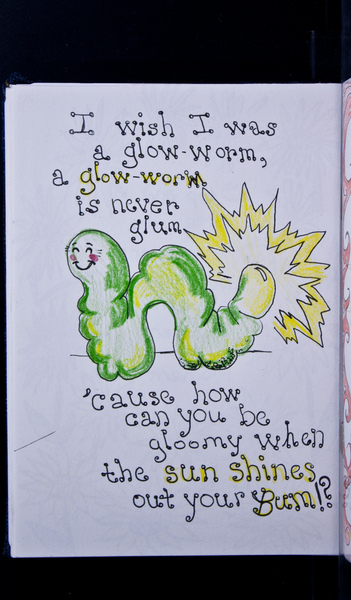 I wish I was
a glow-worm,
a glow-worm
is never
glum
'cause how
can you be
gloomy when
the sun shines
out your Bum!?